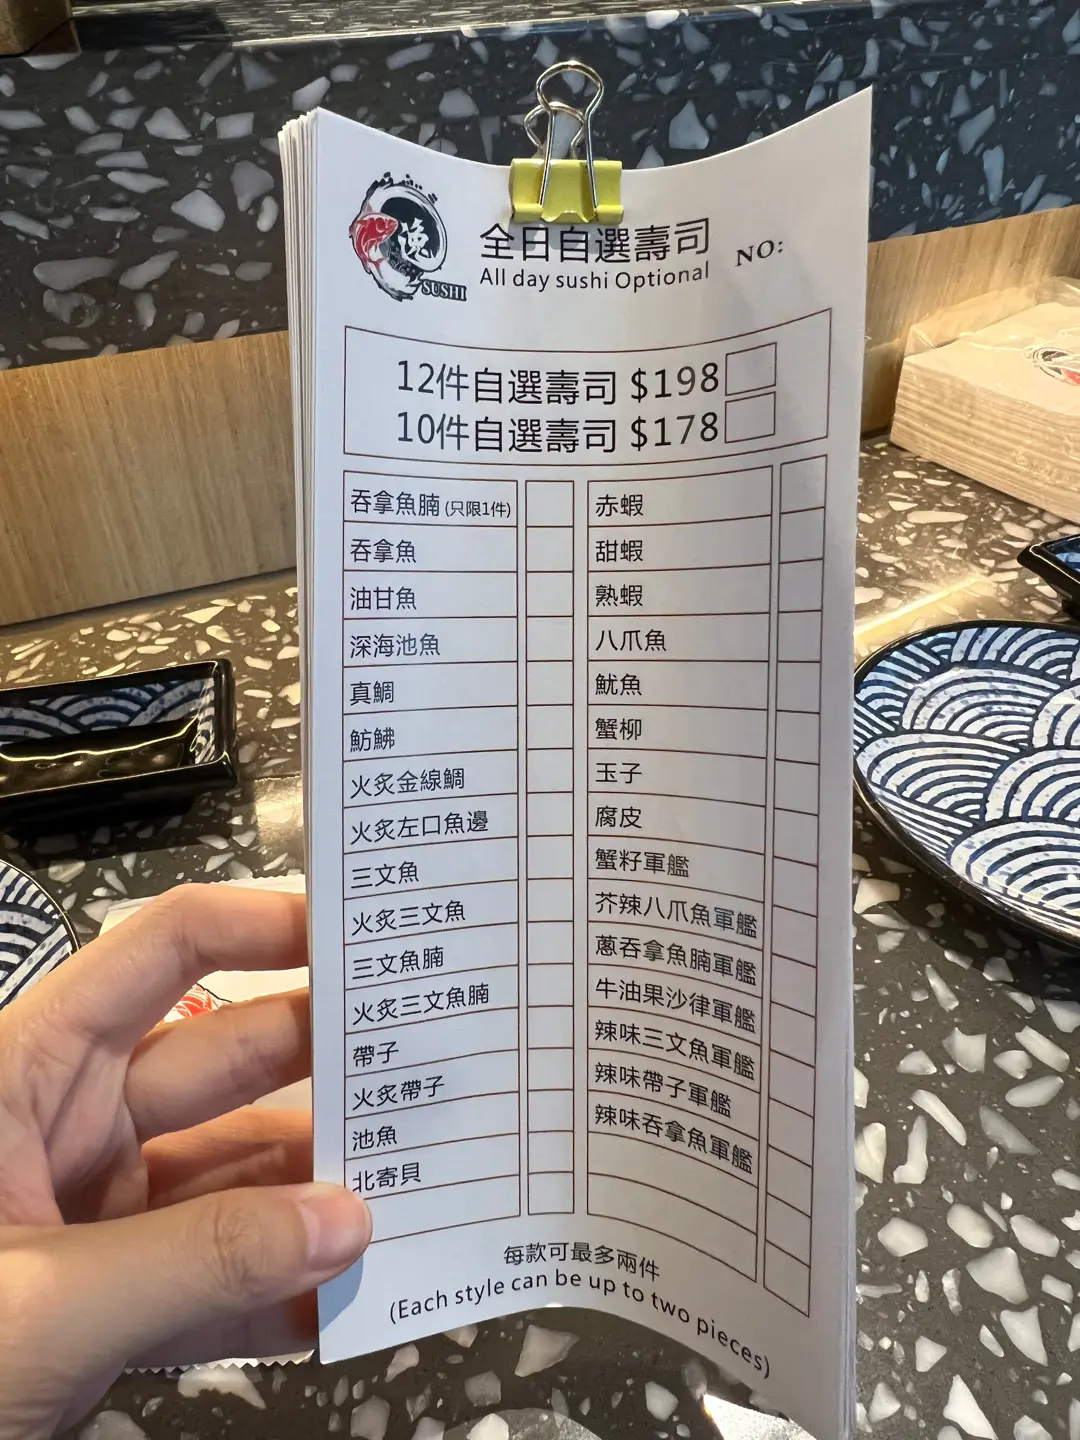 漁
SUSHI
全日自選壽司
All day sushi Optional
NO:
12件自選壽司 $198
10件自選壽司 $178
吞拿魚腩 (只限1件)
吞拿魚
油甘魚
深海池魚
真鯛
魴鮄
火炙金線鯛
火炙左口魚邊
三文魚
火炙三文魚
三文魚腩
火炙三文魚腩
帶子
火炙帶子
池魚
北寄貝
赤蝦
甜蝦
熟蝦
八爪魚
魷魚
蟹柳
玉子
腐皮
蟹籽軍艦
芥辣八爪魚軍艦
蔥吞拿魚腩軍艦
牛油果沙律軍艦
辣味三文魚軍艦
辣味帶子軍艦
辣味吞拿魚軍艦
每款可最多兩件
(Each style can be up to two pieces)